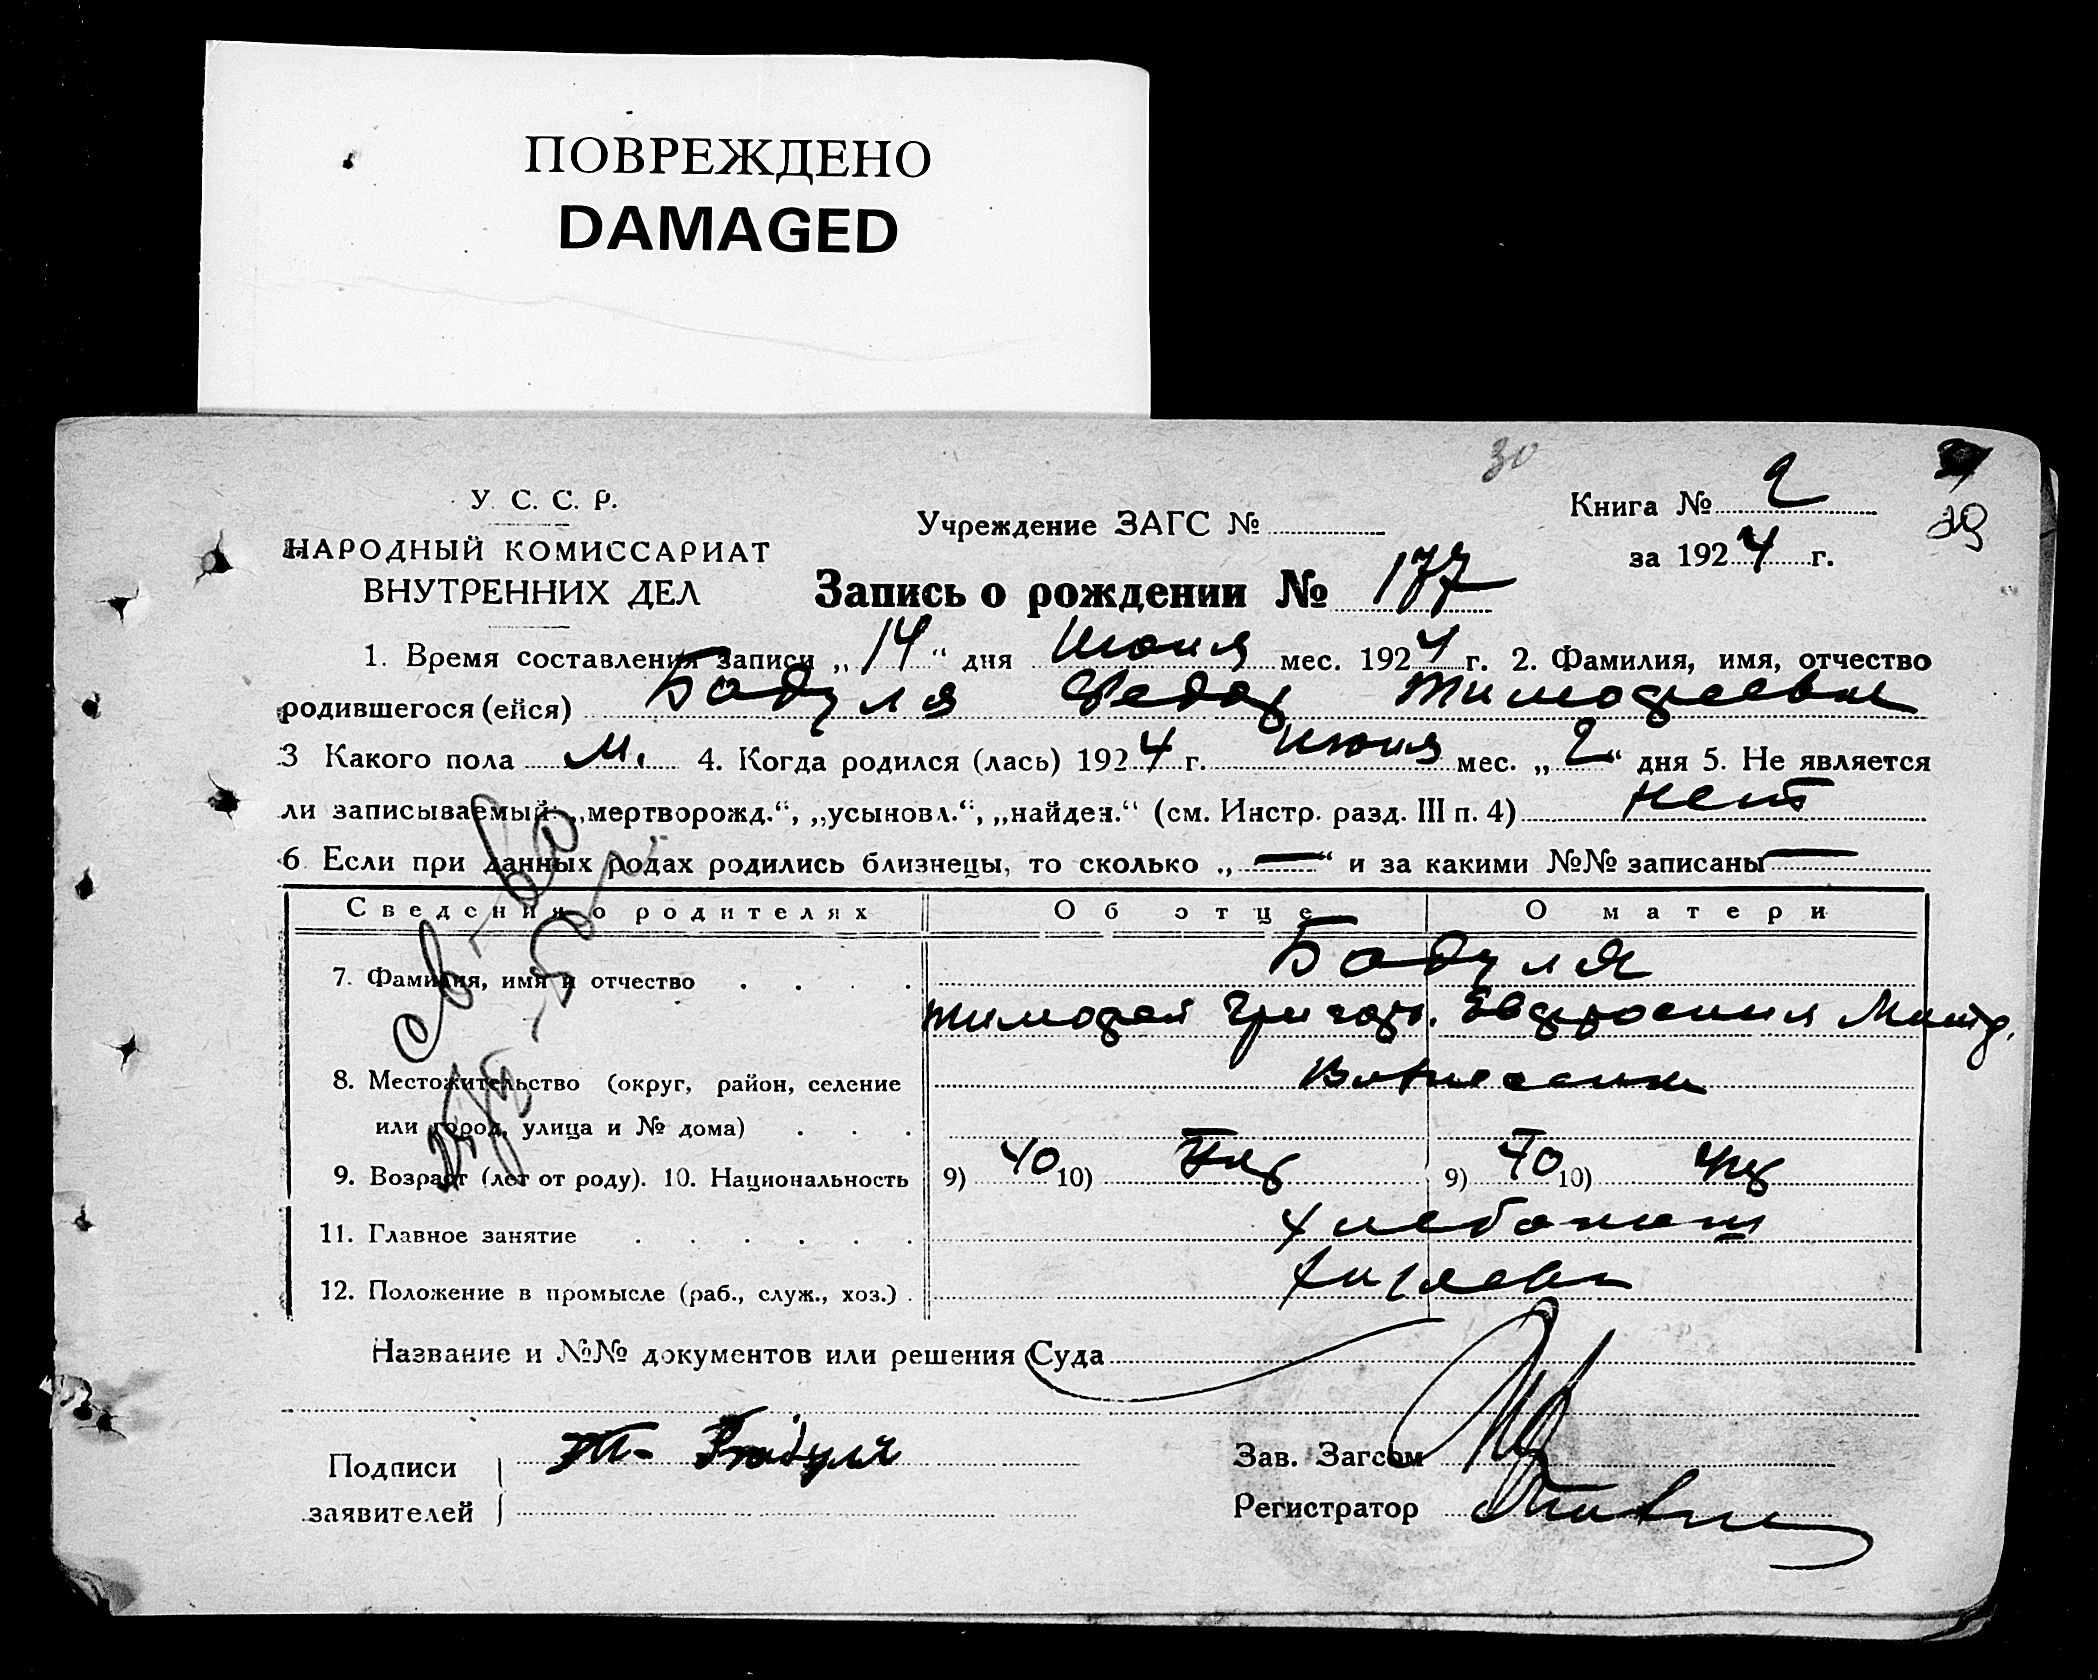 ПОВРЕЖДЕНО
DAMAGED
30
У. С. С. Р.
НАРОДНЫЙ КОМИССАРИАТ
ВНУТРЕННИХ ДЕЛ
Учреждение ЗАГС №
Книга № 2
за 1924 г.
29
Запись о рождении № 177
1. Время составления записи „14“ дня Июня мес. 1924 г. 2. Фамилия, имя, отчество
родившегося (ейся) Бадуля Федор Тимофеевич
3 Какого пола м. 4. Когда родился (лась) 1924 г. Июня мес. „2“ дня 5. Не является
ли записываемый: „мертворожд.“, „усыновл.“, „найден.“ (см. Инстр. разд. III п. 4) нет
6. Если при данных родах родились близнецы, то сколько „—“ и за какими №№ записаны —
Сведения о родителях Об отце О матери
7. Фамилия, имя и отчество Бадуля
Тимофей Григор. Евдросиния Митр.
8. Местожительство (округ, район, селение
или город, улица и № дома)
9. Возраст (лет от роду). 10. Национальность 9) 40 10) Укр 9) 40 10) Укр
11. Главное занятие хлебопаш
12. Положение в промысле (раб., служ., хоз.) хозяева
Название и №№ документов или решения Суда
Подписи Т. Бадуля
заявителей
Зав. Загсом
Регистратор